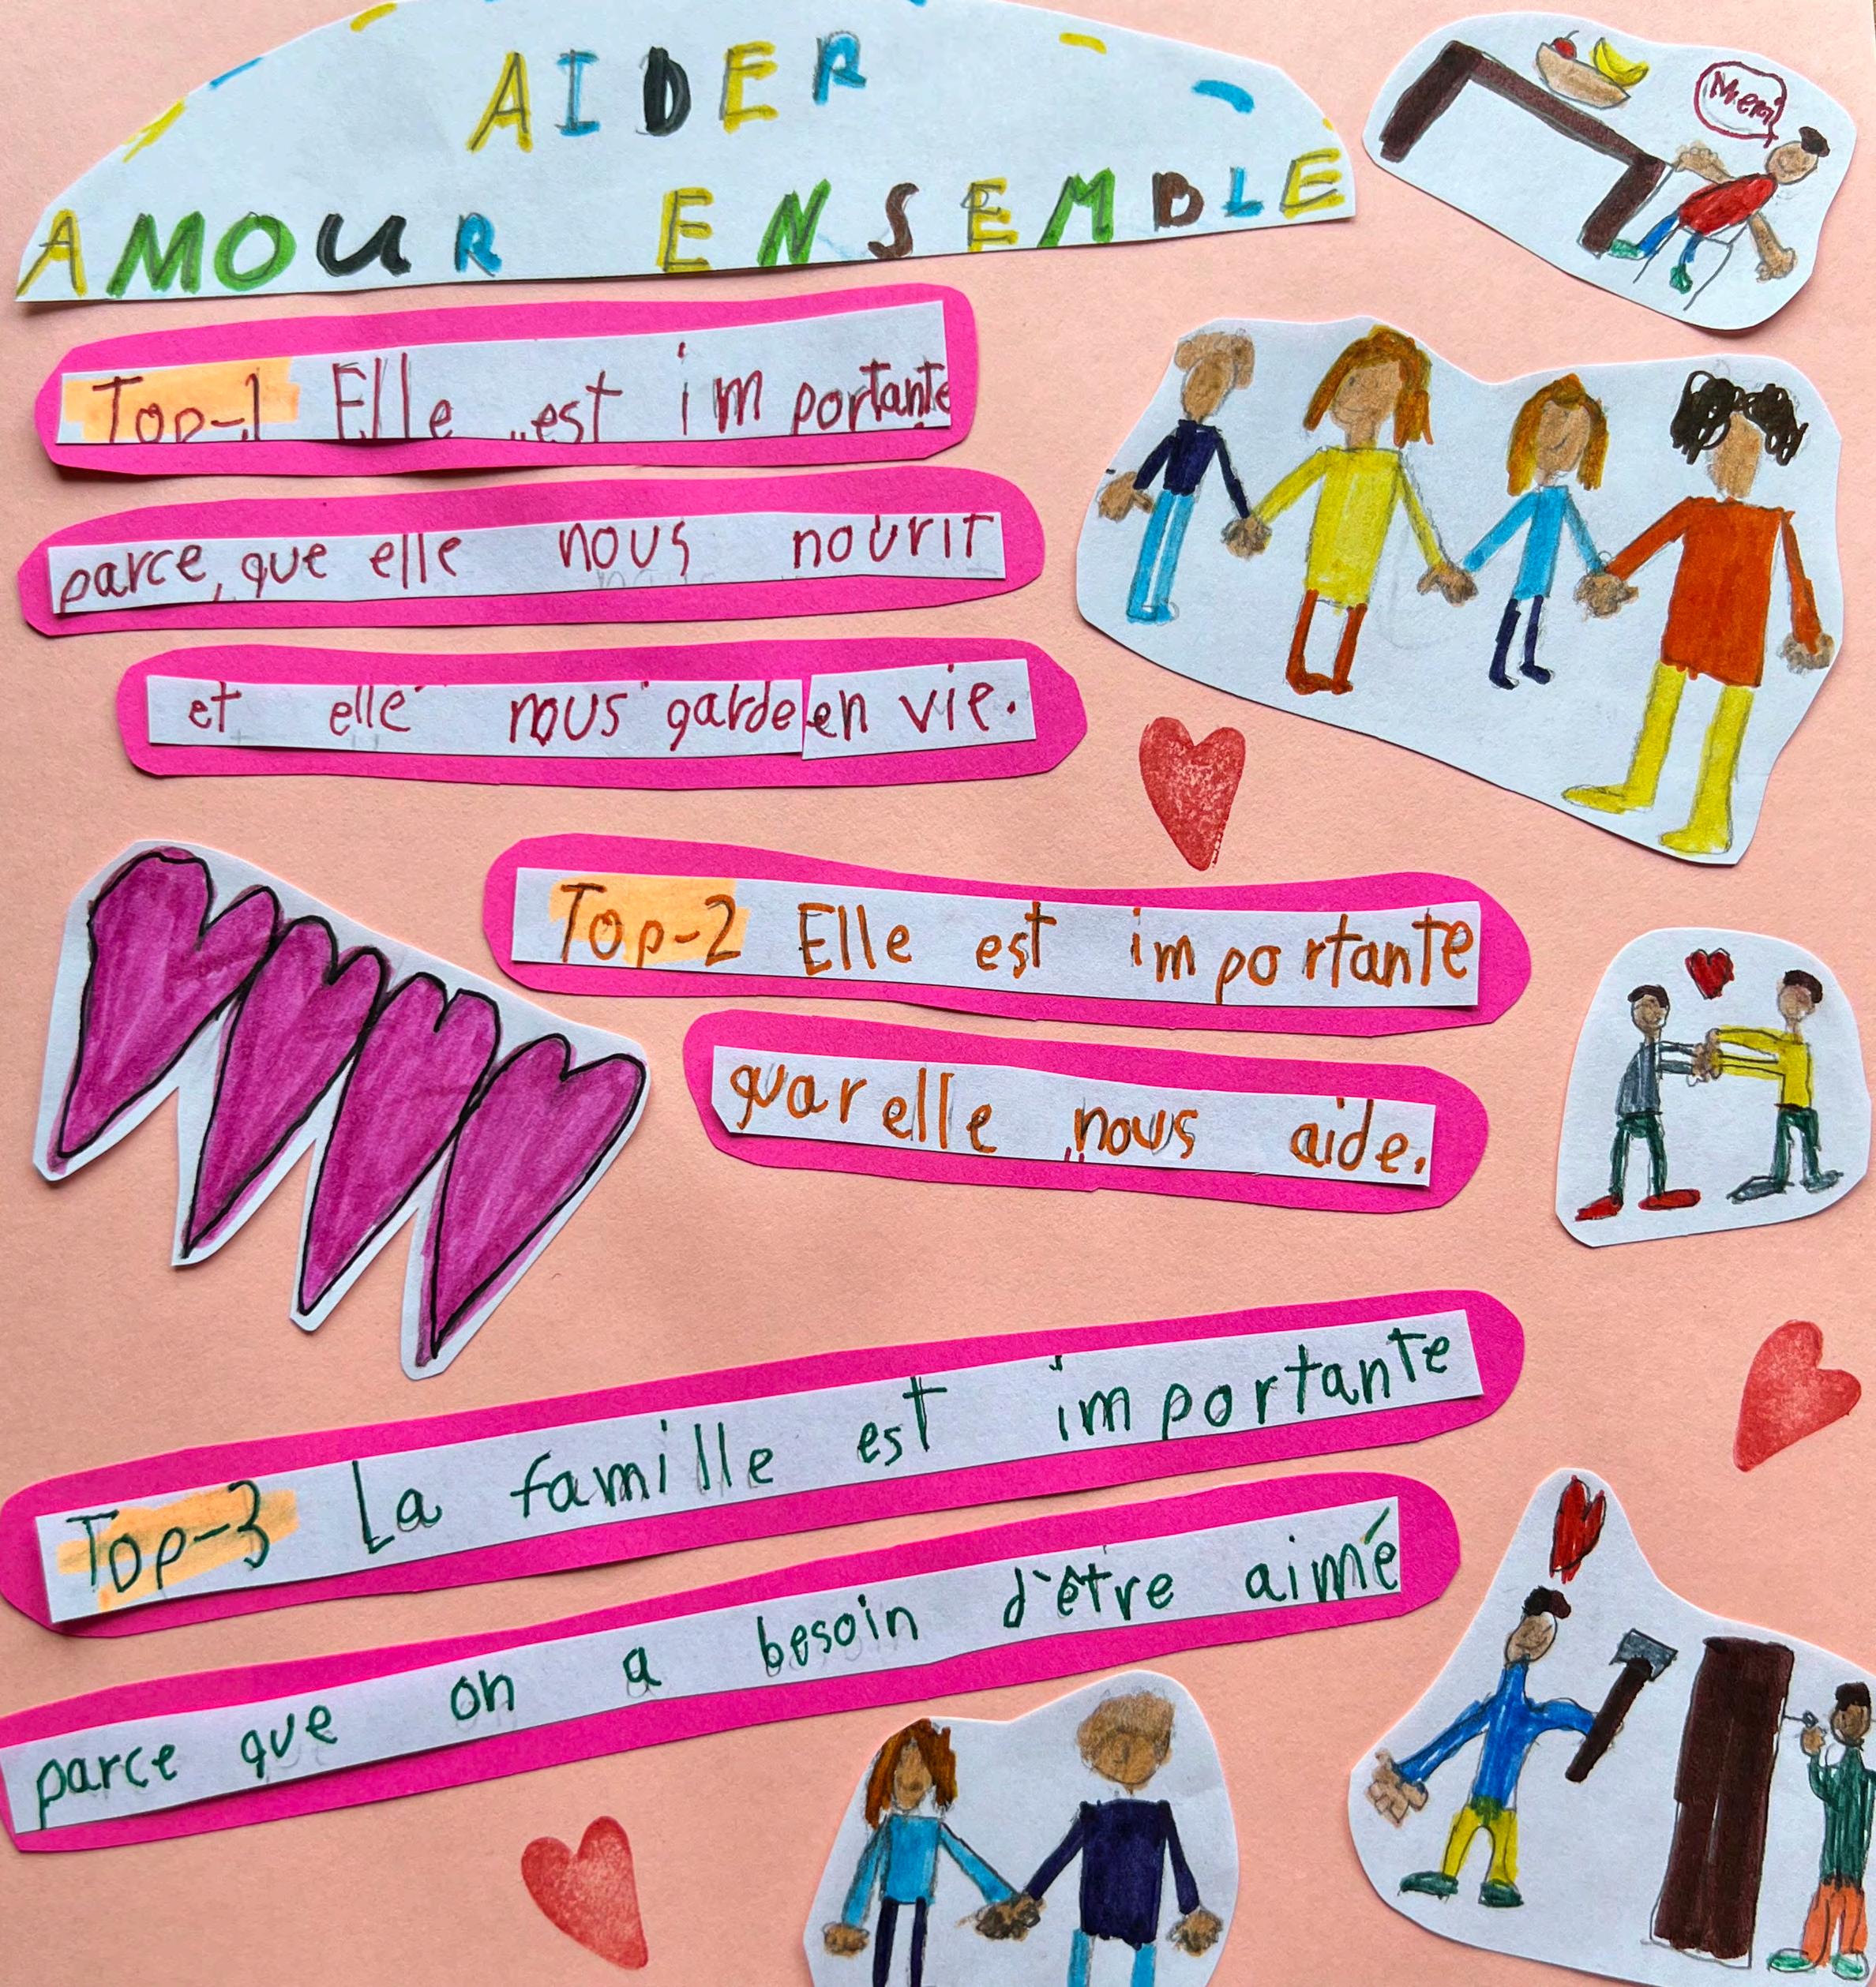 AIDER
AMOUR ENSEMBLE
Merci
Top-1 Elle est importante
parce, que elle nous nourit
et elle nous garde en vie.
Top-2 Elle est importante
quar elle nous aide.
Top-3 La famille est importante
parce que on a besoin d'être aimé